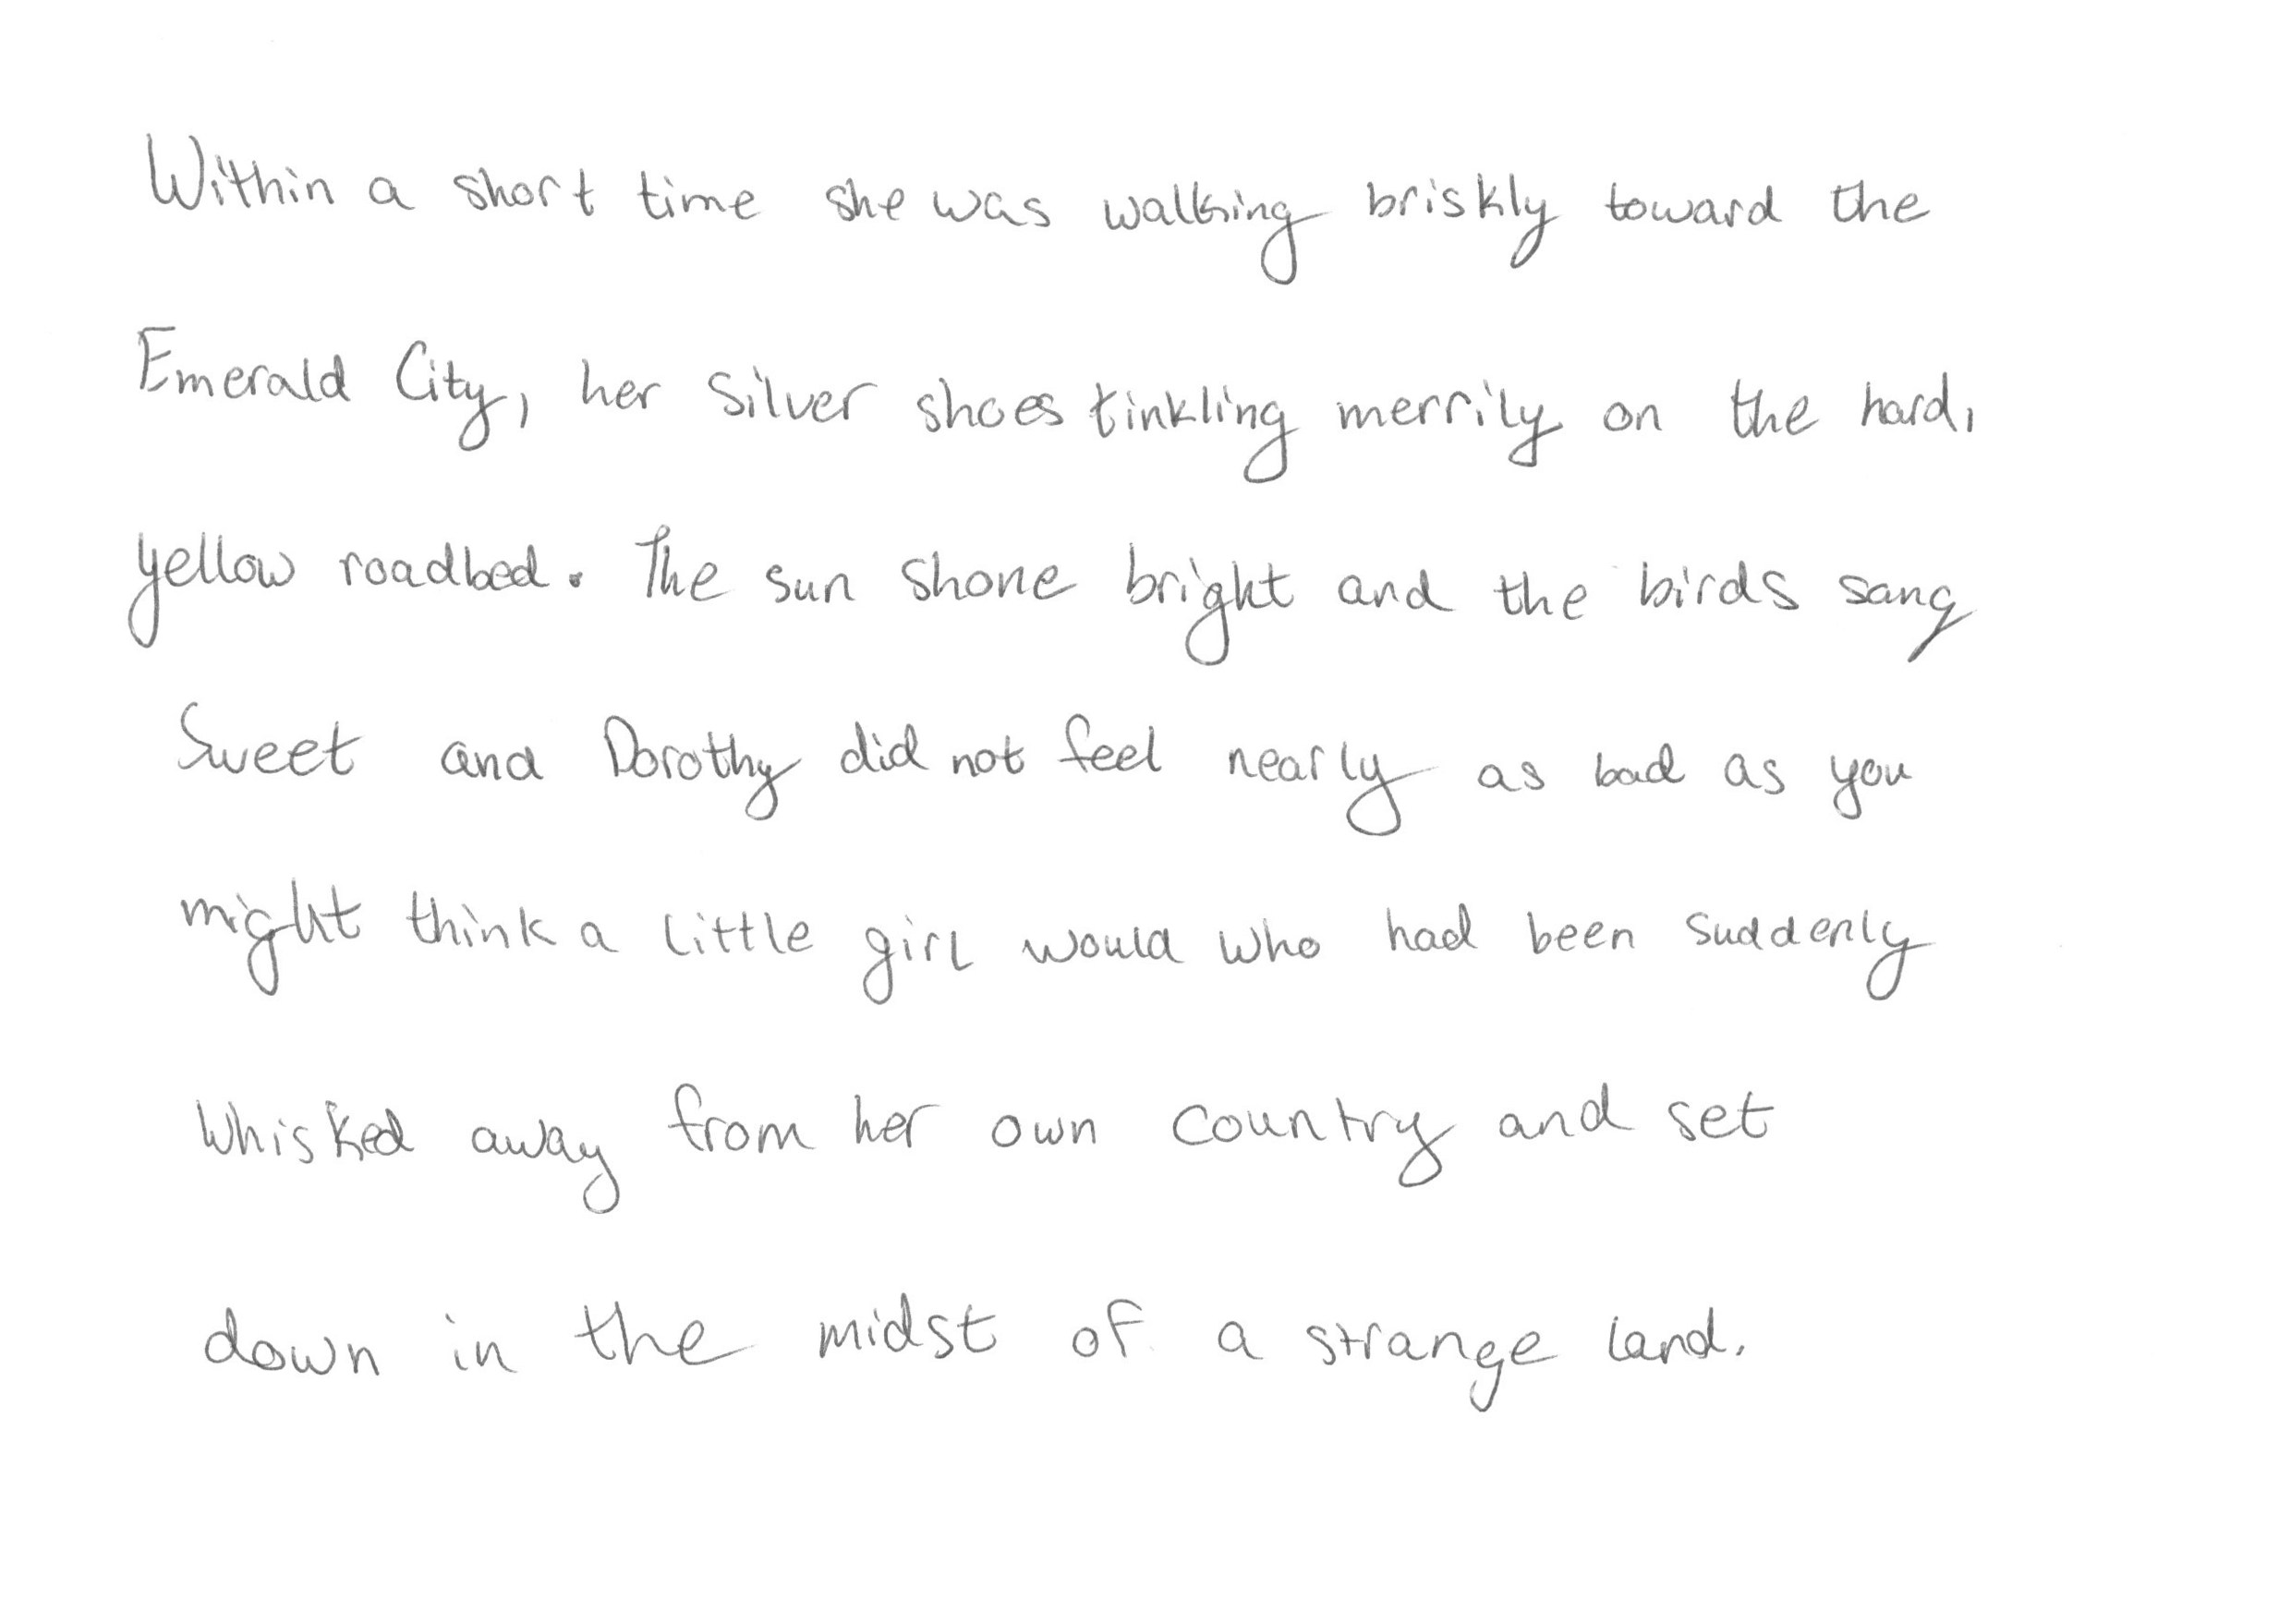 Within a short time she was walking briskly toward the
Emerald City, her Silver shoes tinkling merrily on the hard,
yellow roadbed. The sun shone bright and the birds sang
Sweet and Dorothy did not feel nearly as bad as you
might think a little girl would who had been suddenly
whisked away from her own country and set
down in the midst of a strange land.